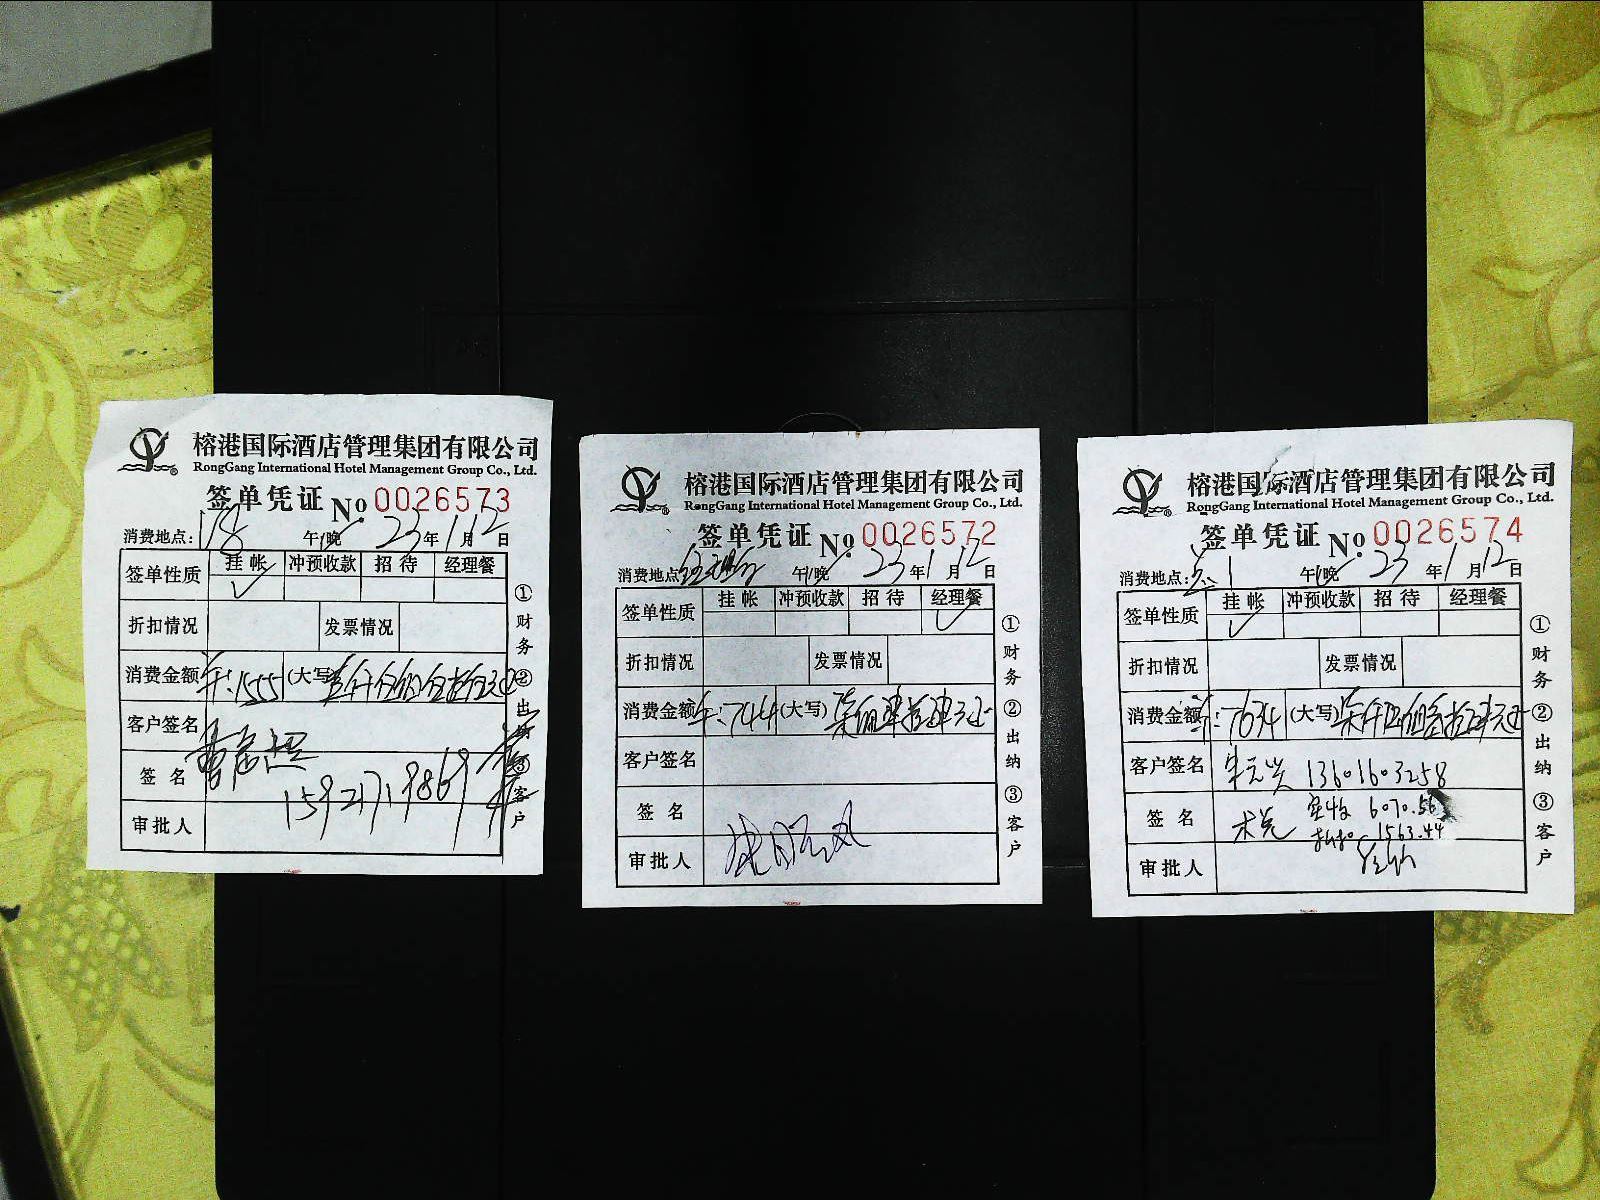 榕港国际酒店管理集团有限公司
RongGang International Hotel Management Group Co., Ltd.
签单凭证 No 0026573
消费地点: 118 午/晚 23年1月12日
签单性质 挂帐 冲预收款 招待 经理餐
折扣情况 发票情况
消费金额 1555 (大写)
客户签名
签名 15921719869
审批人
①财务 ②出纳 ③客户
榕港国际酒店管理集团有限公司
RongGang International Hotel Management Group Co., Ltd.
签单凭证 No 0026572
消费地点 午/晚 23年1月12日
签单性质 挂帐 冲预收款 招待 经理餐
折扣情况 发票情况
消费金额 744 (大写) 柒佰肆拾肆元正
客户签名
签名
审批人
①财务 ②出纳 ③客户
榕港国际酒店管理集团有限公司
RongGang International Hotel Management Group Co., Ltd.
签单凭证 No 0026574
消费地点: 午/晚 23年1月12日
签单性质 挂帐 冲预收款 招待 经理餐
折扣情况 发票情况
消费金额 7634 (大写)
客户签名 13601603258
签名 6070.56
1563.44
审批人
①财务 ②出纳 ③客户